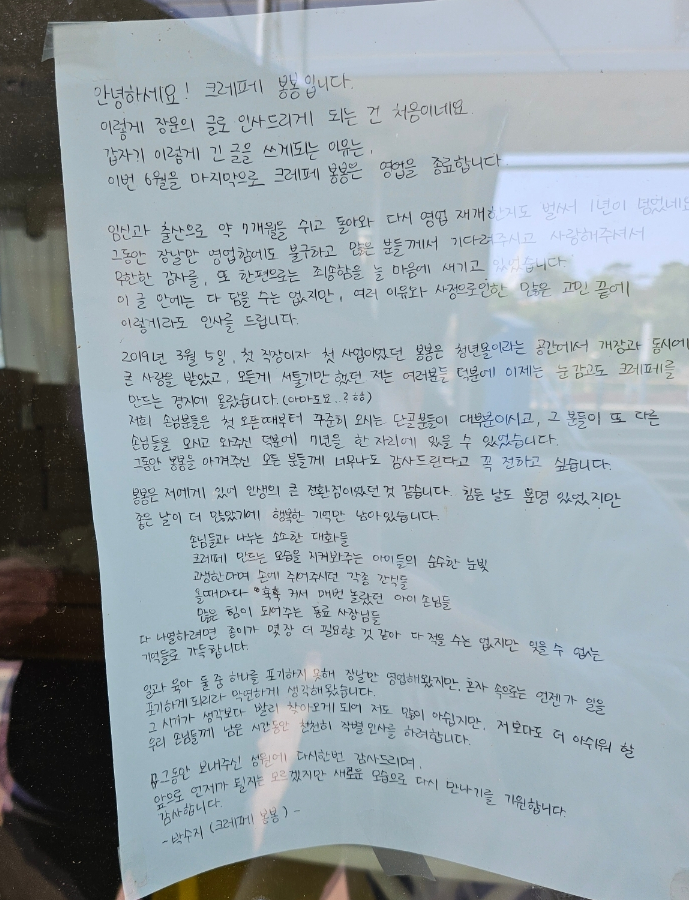 안녕하세요! 크레페 봉봉입니다.
이렇게 장문의 글로 인사드리게 되는 건 처음이네요.
갑자기 이렇게 긴 글을 쓰게되는 이유는,
이번 6월을 마지막으로 크레페 봉봉은 영업을 종료합니다
임신과 출산으로 약 7개월을 쉬고 돌아와 다시 영업 재개한지도 벌써 1년이 넘었네요
그동안 장날만 영업함에도 불구하고 많은 분들께서 기다려주시고 사랑해주셔서
무한한 감사를, 또 한편으로는 죄송함을 늘 마음에 새기고 있었습니다
이 글 안에는 다 담을 수는 없지만, 여러 이유와 사정으로인한 많은 고민 끝에
이렇게라도 인사를 드립니다.
2019년 3월 5일, 첫 직장이자 첫 사업이었던 봉봉은 청년몰이라는 공간에서 개장과 동시에
큰 사랑을 받았고, 모든게 서툴기만 했던 저는 여러분들 덕분에 이제는 눈 감고도 크레페를
만드는 경지에 올랐습니다. (아마도요..ㅎㅎ)
저희 손님분들은 첫 오픈때부터 꾸준히 오시는 단골분들이 대부분이시고, 그 분들이 또 다른
손님들을 모시고 와주신 덕분에 7년을 한 자리에 있을 수 있었습니다.
그동안 봉봉을 아껴주신 모든 분들께 너무나도 감사드린다고 꼭 전하고 싶습니다.
봉봉은 저에게 있어 인생의 큰 전환점이었던 것 같습니다. 힘든 날도 분명 있었지만
좋은 날이 더 많았기에 행복한 기억만 남아있습니다.
손님들과 나누는 소소한 대화들
크레페 만드는 모습을 지켜봐주는 아이들의 순수한 눈빛
고생한다며 손에 쥐어주시던 각종 간식들
올때마다 훅훅 커서 매번 놀랐던 아이 손님들
많은 힘이 되어주는 동료 사장님들
다 나열하려면 종이가 몇장 더 필요할 것 같아 다 적을 수는 없지만 잊을 수 없는
기억들로 가득합니다.
일과 육아 둘 중 하나를 포기하지 못해 장날만 영업해왔지만, 혼자 속으로는 언젠가 일을
포기하게 되리라 막연하게 생각해왔습니다.
그 시기가 생각보다 빨리 찾아오게 되어 저도 많이 아쉽지만, 저보다도 더 아쉬워 할
우리 손님들께 남은 시간동안 천천히 작별 인사를 하려합니다.
그동안 보내주신 성원에 다시한번 감사드리며,
앞으로 언제가 될지는 모르겠지만 새로운 모습으로 다시 만나기를 기원합니다.
감사합니다.
-박수지 (크레페 봉봉) -